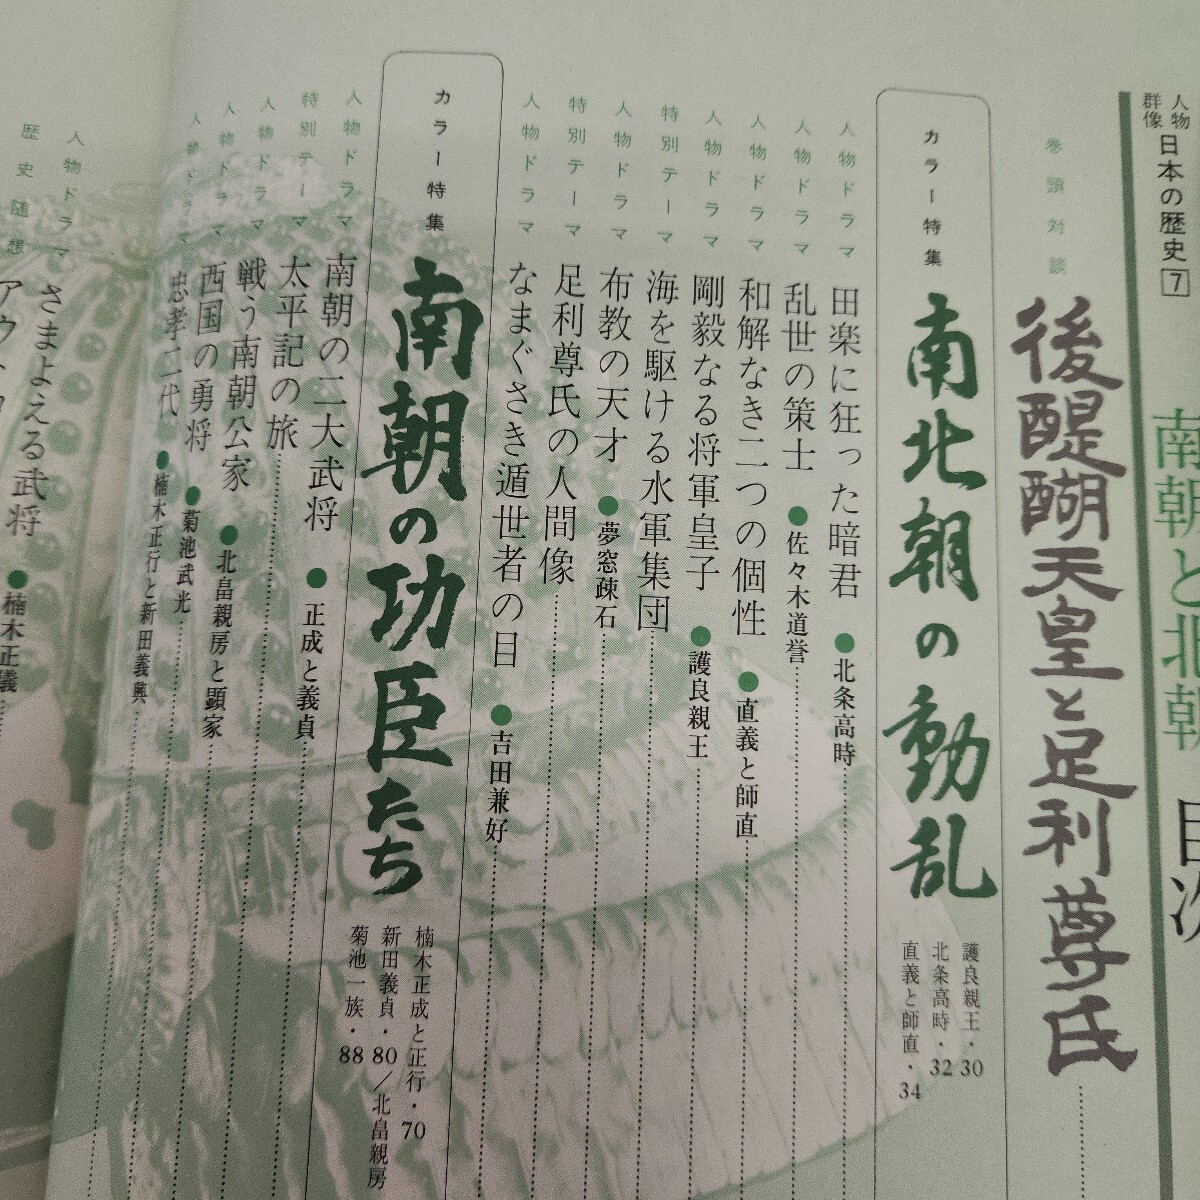 人物
群像
日本の歴史 7
南朝と北朝
目次
巻頭対談
後醍醐天皇と足利尊氏
カラー特集
南北朝の動乱
護良親王・30
北条高時・32
直義と師直・34
人物ドラマ
田楽に狂った暗君 ●北条高時
人物ドラマ
乱世の策士 ●佐々木道誉
人物ドラマ
和解なき二つの個性 ●直義と師直
人物ドラマ
剛毅なる将軍皇子 ●護良親王
特別テーマ
海を駆ける水軍集団
人物ドラマ
布教の天才 ●夢窓疎石
特別テーマ
足利尊氏の人間像
人物ドラマ
なまぐさき遁世者の目 ●吉田兼好
カラー特集
南朝の功臣たち
楠木正成と正行・70
新田義貞・80/北畠親房
菊池一族・88
人物ドラマ
南朝の二大武将 ●正成と義貞
特別テーマ
太平記の旅
人物ドラマ
戦う南朝公家 ●北畠親房と顕家
人物ドラマ
西国の勇将 ●菊池武光
人物ドラマ
忠孝二代 ●楠木正行と新田義興
人物ドラマ
さまよえる武将 ●楠木正儀
歴史随想
アウトロ